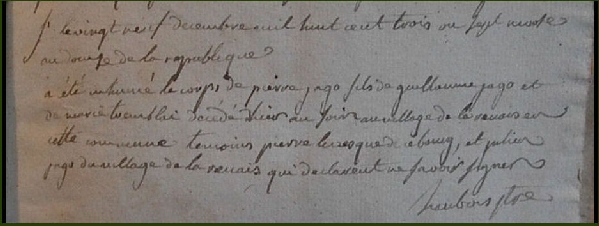 le vingt neuf decembre mil huit cent trois ou sept nivose
an douze de la republique
a été inhumé le corps de pierre jago fils de guillaume jago et
de marie tremblai décédé d'hier au soir au village de la renais en
cette commune temoins pierre levesque de ce bourg, et julien
jago du village de la renais qui declarent ne savoir signer
ptre